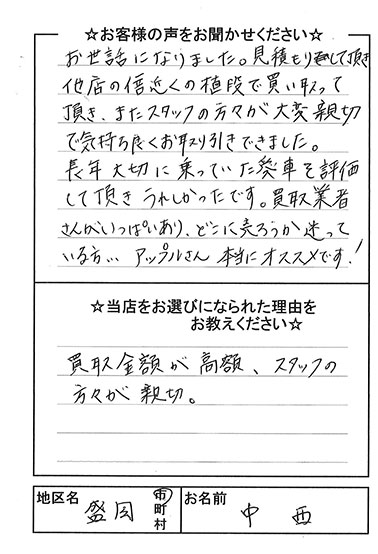 ☆お客様の声をお聞かせください☆
お世話になりました。見積もり して頂き
他店の倍近くの値段で買い取って
頂き、またスタッフの方々が大変親切
で気持ち良くお取り引きできました。
長年大切に乗っていた愛車を評価
して頂きうれしかったです。買取業者
さんがいっぱいあり、どこに売ろうか迷って
いる方… アップルさん本当にオススメです！
☆当店をお選びになられた理由を
お教えください☆
買取金額が高額、スタッフの
方々が親切。
地区名 盛岡 市町村 お名前 中西